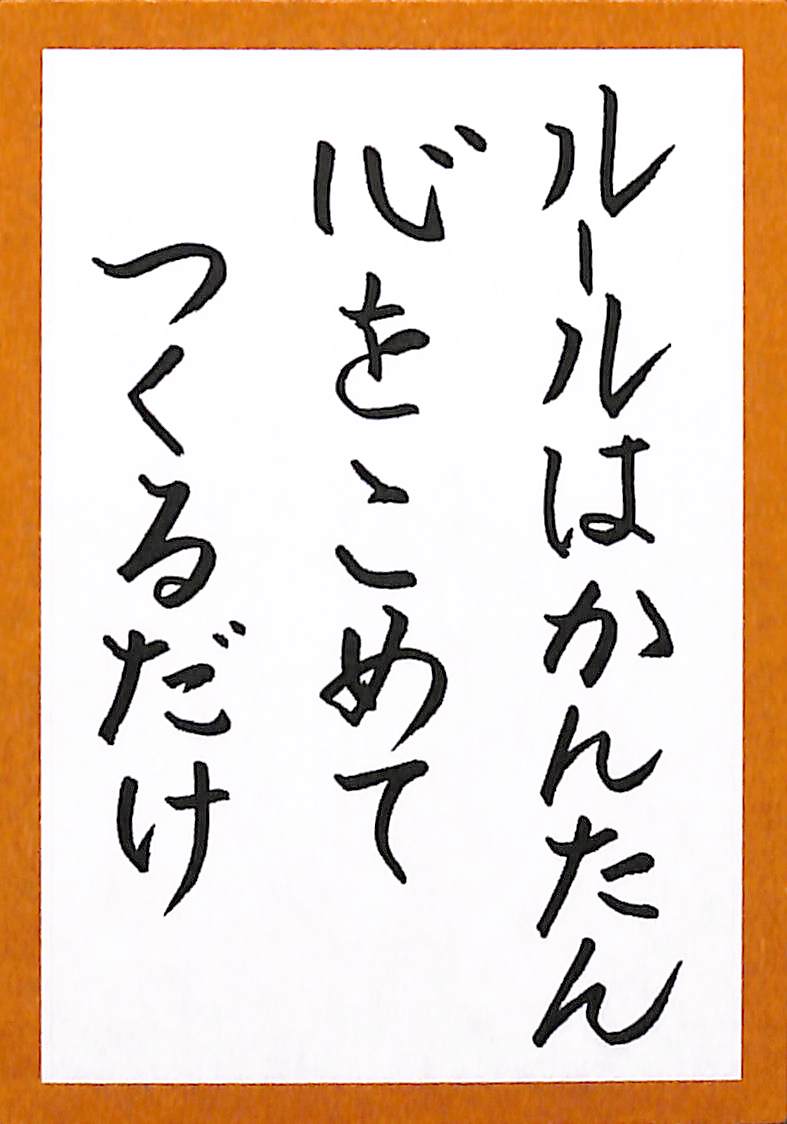 ルールはかんたん
心をこめて
つくるだけ